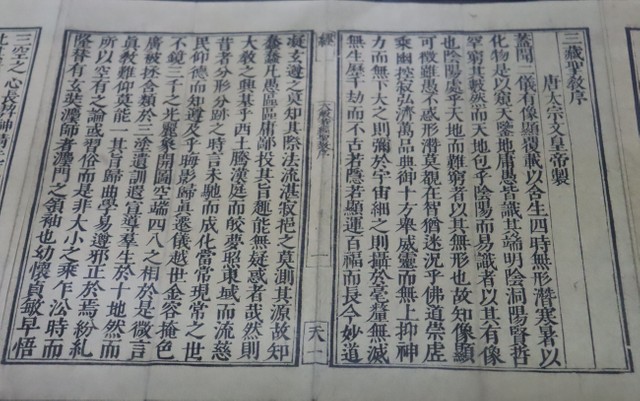 三藏聖教序
唐太宗文皇帝製
蓋聞二儀有像顯覆載以含生四時無形潛寒暑以
化物是以窺天鑒地庸愚皆識其端明陰洞陽賢哲
罕窮其數然而天地包乎陰陽而易識者以其有像
也陰陽處乎天地而難窮者以其無形也故知像顯
可徵雖愚不惑形潛莫覩在智猶迷況乎佛道崇虛
乘幽控寂弘濟萬品典御十方舉威靈而無上抑神
力而無下大之則彌於宇宙細之則攝於毫釐無滅
無生歷千劫而不古若隱若顯運百福而長今妙道
經
一
天一
凝玄遵之莫知其際法流湛寂挹之莫測其源故知
蠢蠢凡愚區區庸鄙投其旨趣能無疑惑者哉然則
大教之興基乎西土騰漢庭而皎夢照東域而流慈
昔者分形分跡之時言未馳而成化當常現常之世
民仰德而知遵及乎晦影歸眞遷儀越世金容掩色
不鏡三千之光麗象開圖空端四八之相於是微言
廣被拯含類於三塗遺訓遐宣導羣生於十地然而
眞教難仰莫能一其旨歸曲學易遵邪正於焉紛糺
所以空有之論或習俗而是非大小之乘乍㳂時而
隆替有玄奘灋師者灋門之領袖也幼懷貞敏早悟
三空之心長